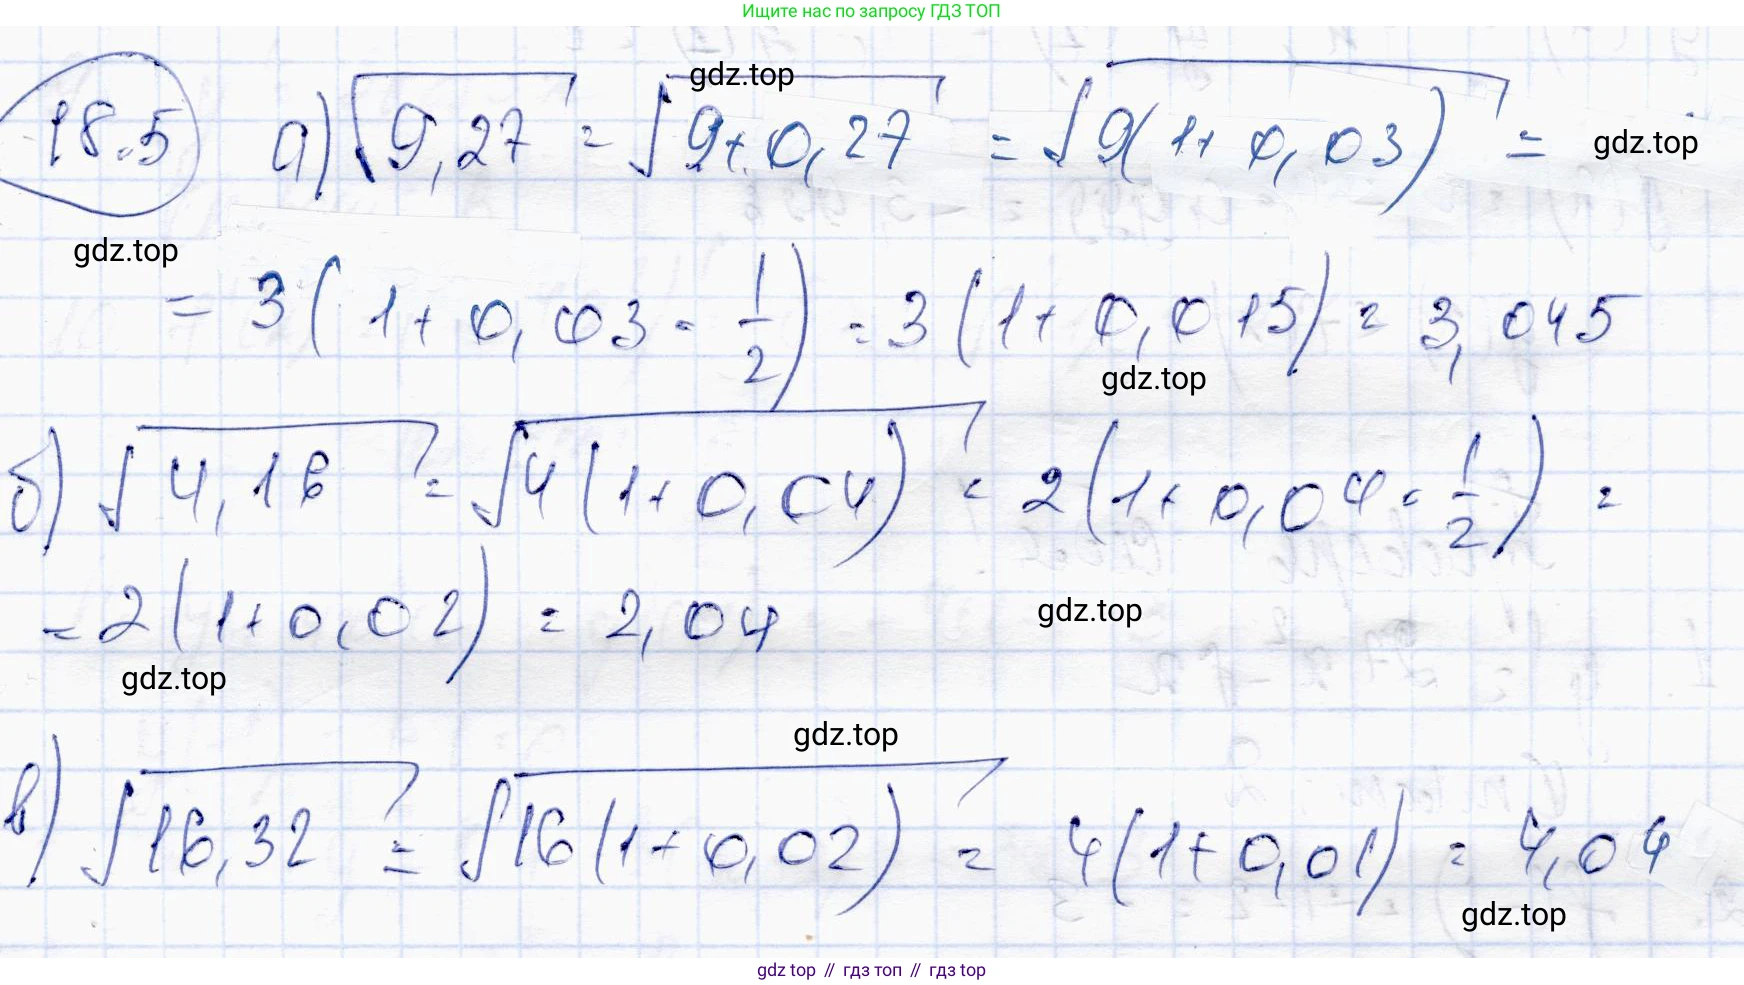 Ищите нас по запросу ГДЗ ТОП
gdz.top
18.5 а) √9,27 = √9+0,27 = √9(1+0,03) =
gdz.top
gdz.top
= 3(1+0,03·1/2) = 3(1+0,015) = 3,045
gdz.top
б) √4,16 = √4(1+0,04) = 2(1+0,04·1/2) =
= 2(1+0,02) = 2,04
gdz.top
gdz.top
gdz.top
в) √16,32 = √16(1+0,02) = 4(1+0,01) = 4,04
gdz.top
gdz top // гдз топ // гдз top